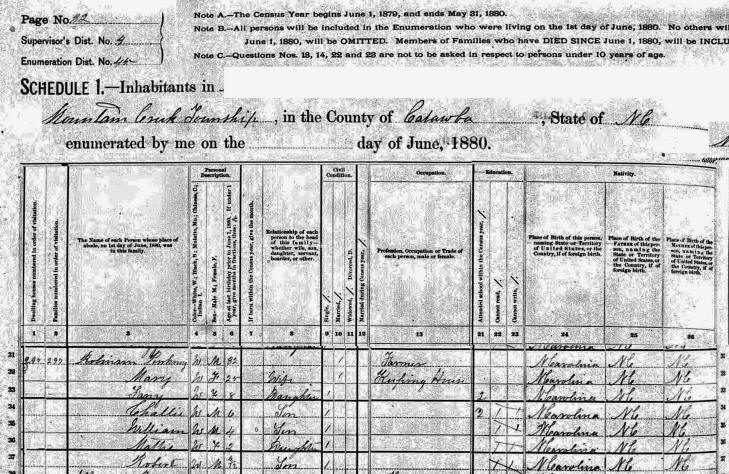 Page No. 22
Supervisor's Dist. No. 9
Enumeration Dist. No.
Note A.—The Census Year begins June 1, 1879, and ends May 31, 1880.
Note B.—All persons will be included in the Enumeration who were living on the 1st day of June, 1880. No others wi
June 1, 1880, will be OMITTED. Members of Families who have DIED SINCE June 1, 1880, will be INCLU
Note C.—Questions Nos. 13, 14, 22 and 23 are not to be asked in respect to persons under 10 years of age.
SCHEDULE 1.—Inhabitants in
Mountain Creek Township, in the County of Catawba, State of NC
enumerated by me on the day of June, 1880.
Personal Description. Civil Condition. Occupation. Education. Nativity.
Dwelling houses numbered in order of visitation.
Families numbered in order of visitation.
The Name of each Person whose place of abode, on 1st day of June, 1880, was in this family.
Color—White, W.; Black, B.; Mulatto, Mu.; Chinese, C.; Indian, I.
Sex—Male, M.; Female, F.
Age at last birthday prior to June 1, 1880. If under 1 year, give months in fractions, thus:
If born within the Census year, give the month.
Relationship of each person to the head of this family—whether wife, son, daughter, servant, boarder, or other.
Single, /
Married, /
Widowed, / Divorced, D.
Married during Census year, /
Profession, Occupation or Trade of each person, male or female.
Attended school within the Census year, /
Cannot read, /
Cannot write, /
Place of Birth of this person, naming State or Territory of United States, or the Country, if of foreign birth.
Place of Birth of the Father of this person, naming the State or Territory of United States, or the Country, if of foreign birth.
Place of Birth of the Mother of this person, naming the State or Territory of United States, or the Country, if of foreign birth.
1 2 3 4 5 6 7 8 9 10 11 12 13 21 22 23 24 25 26
297 297 Holman W M 32 / Farmer NCarolina NC NC
Mary W F 25 Wife / Keeping House NCarolina NC NC
W F 8 Daughter / NCarolina NC NC
Challie W M 6 Son / NCarolina NC NC
William W M 4 Son / NCarolina NC NC
Mattie W F 2 Daughter / NCarolina NC NC
Robert W M Son / NCarolina NC NC